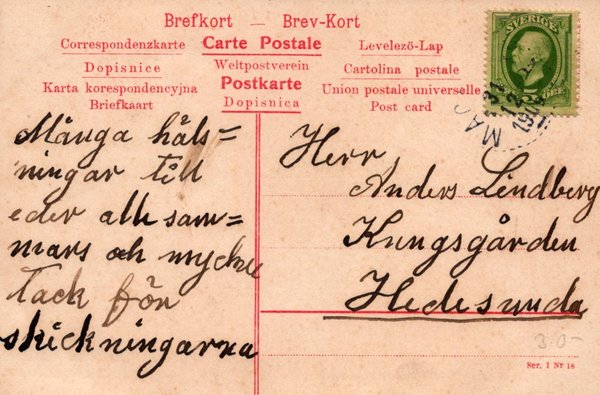 Brefkort — Brev-Kort
Correspondenzkarte Carte Postale Levelező-Lap
Dopisnice Weltpostverein Cartolina postale
Karta korespondencyjna Postkarte Union postale universelle
Briefkaart Dopisnica Post card
SVERIGE
ÖRE
31
12
Många häls=
ningar till
eder allesam=
mars och mycket
tack för
skickningarna
Herr
Anders Lindberg
Kungsgården
Hedesunda
30-
Ser. I Nr 18